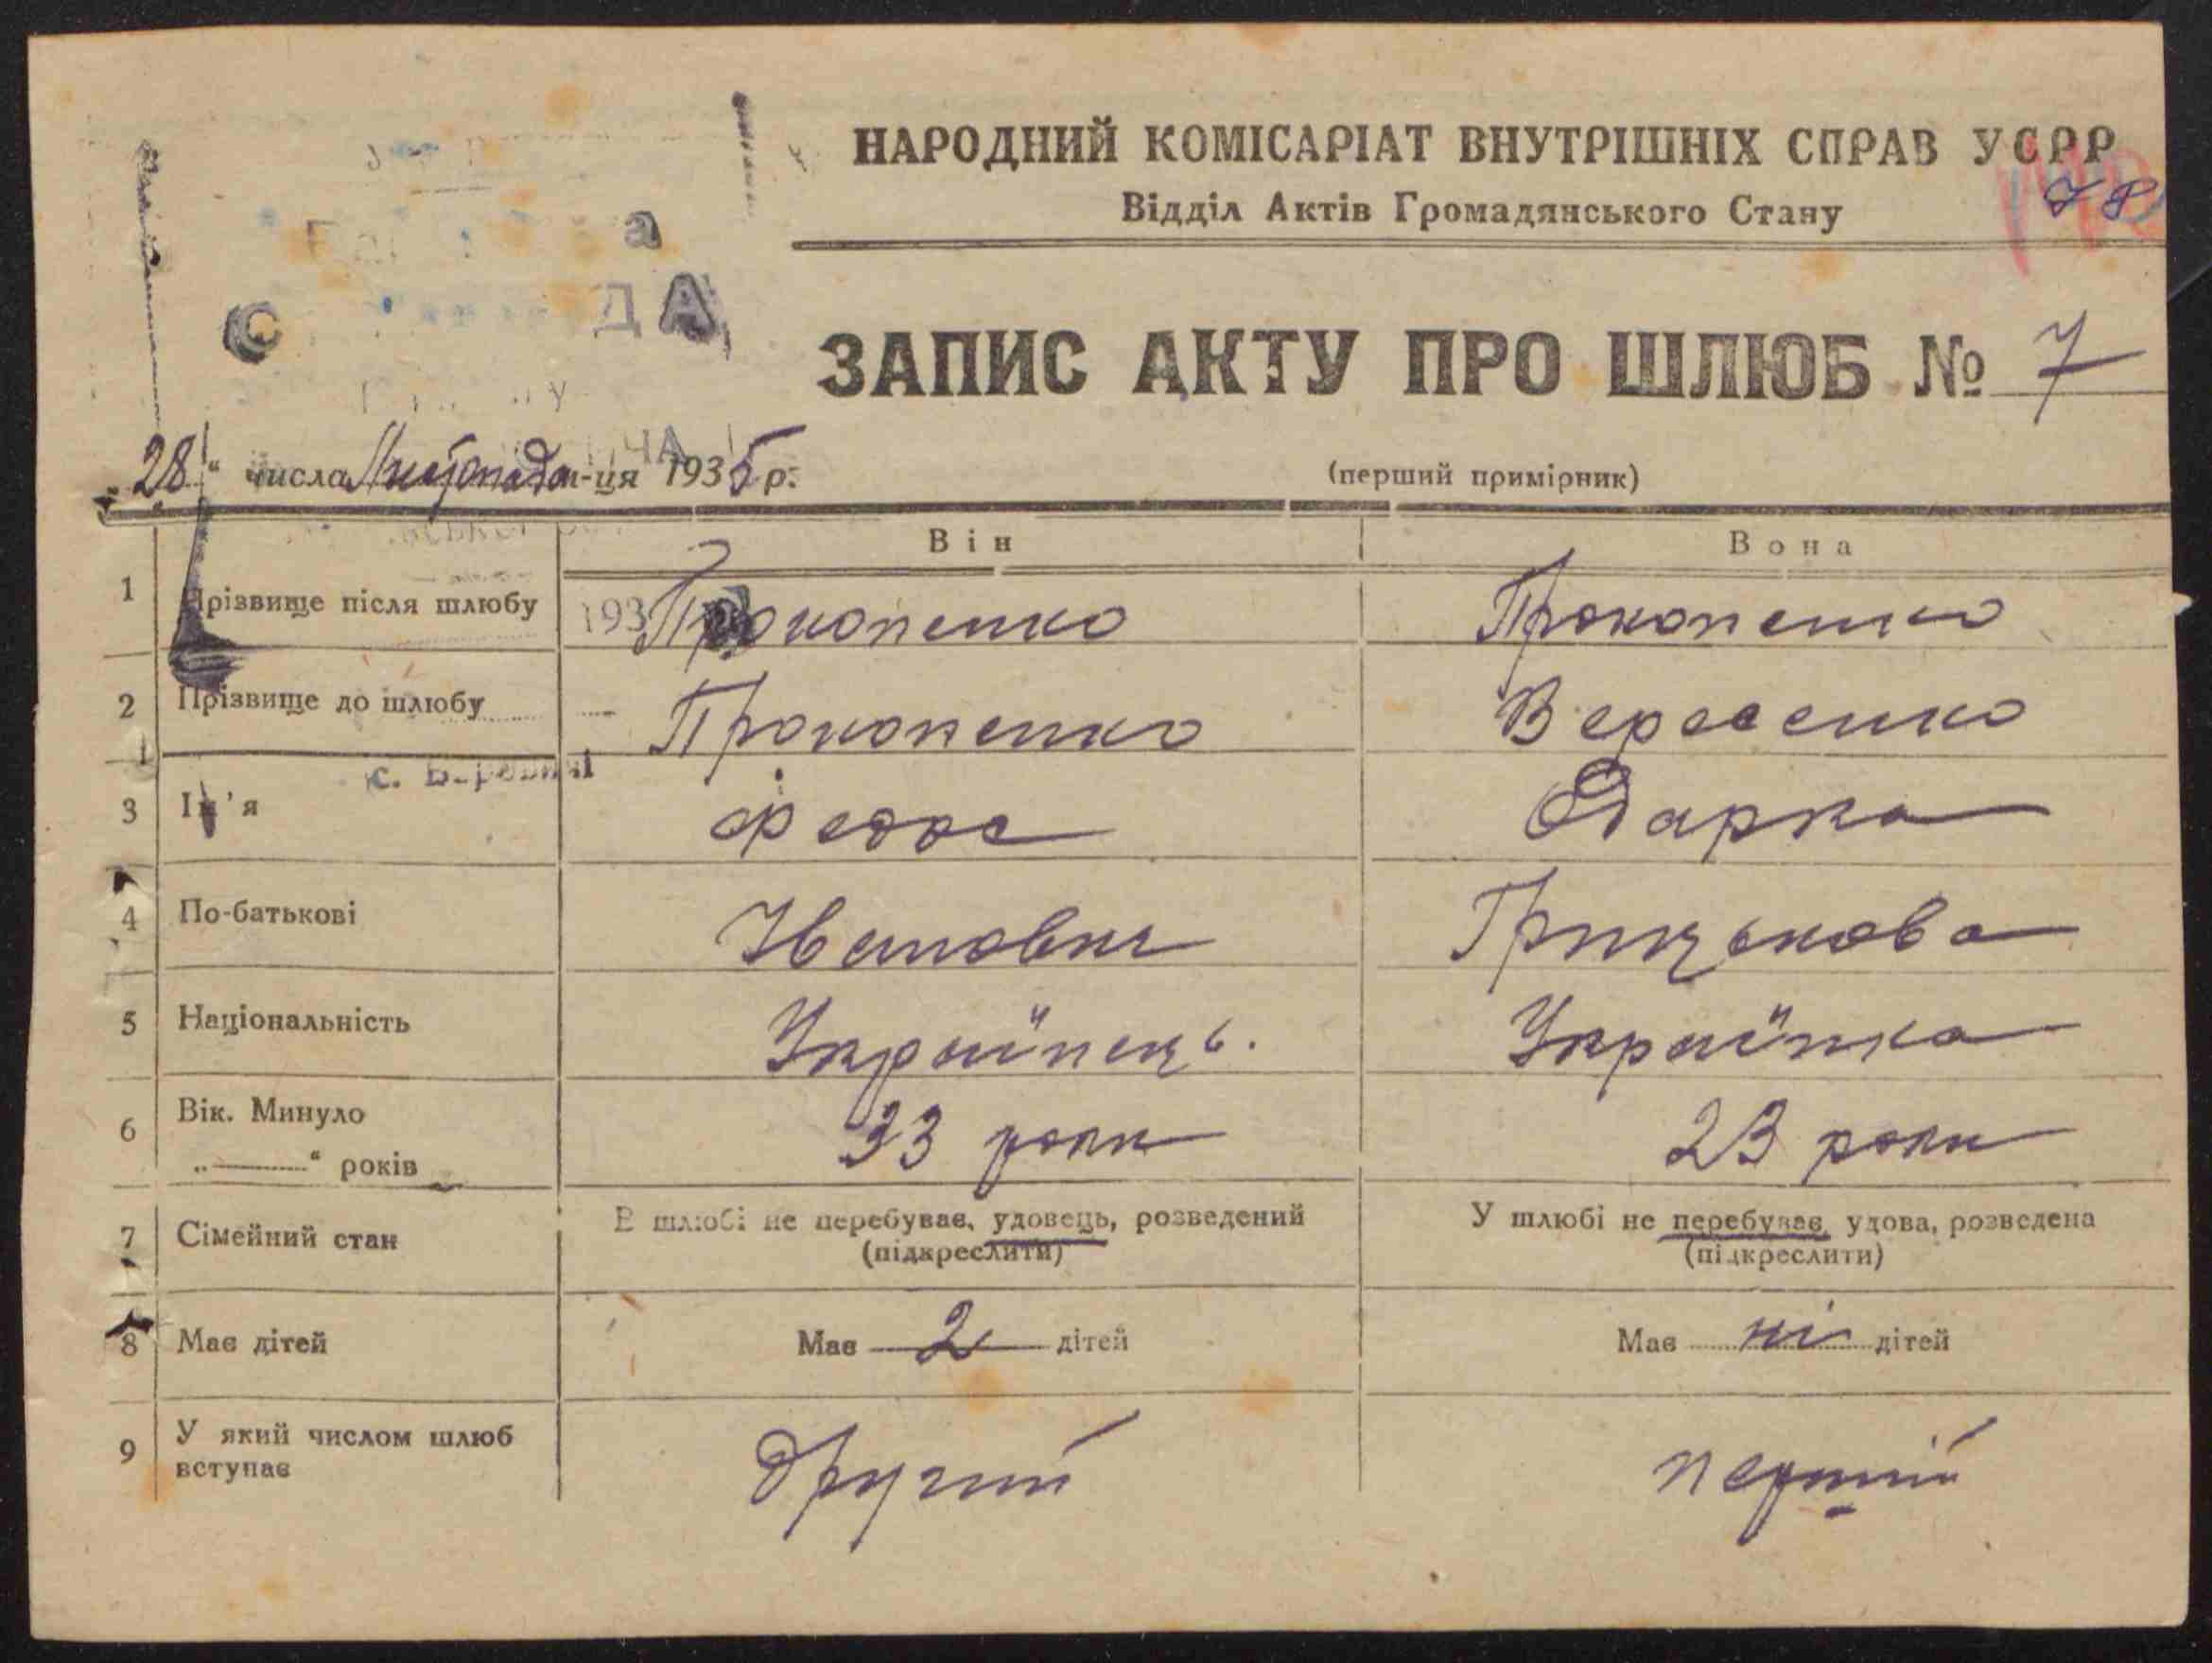 НАРОДНИЙ КОМІСАРІАТ ВНУТРІШНІХ СПРАВ УСРР
Відділ Актів Громадянського Стану
ЗАПИС АКТУ ПРО ШЛЮБ № 7
„28“ числа Листопада м-ця 1935 р.
(перший примірник)
Він Вона
1 Прізвище після шлюбу Прокопенко Прокопенко
2 Прізвище до шлюбу Прокопенко Вересенко
3 Ім'я Федос Одарка
4 По-батькові Іванович Грицькова
5 Національність Українець. Українка
6 Вік. Минуло
„——“ років 33 роки 23 роки
7 Сімейний стан В шлюбі не перебуває, удовець, розведений У шлюбі не перебуває, удова, розведена
(підкреслити) (підкреслити)
8 Має дітей Має 2 дітей Має ні дітей
9 У який числом шлюб
вступає Другий перший